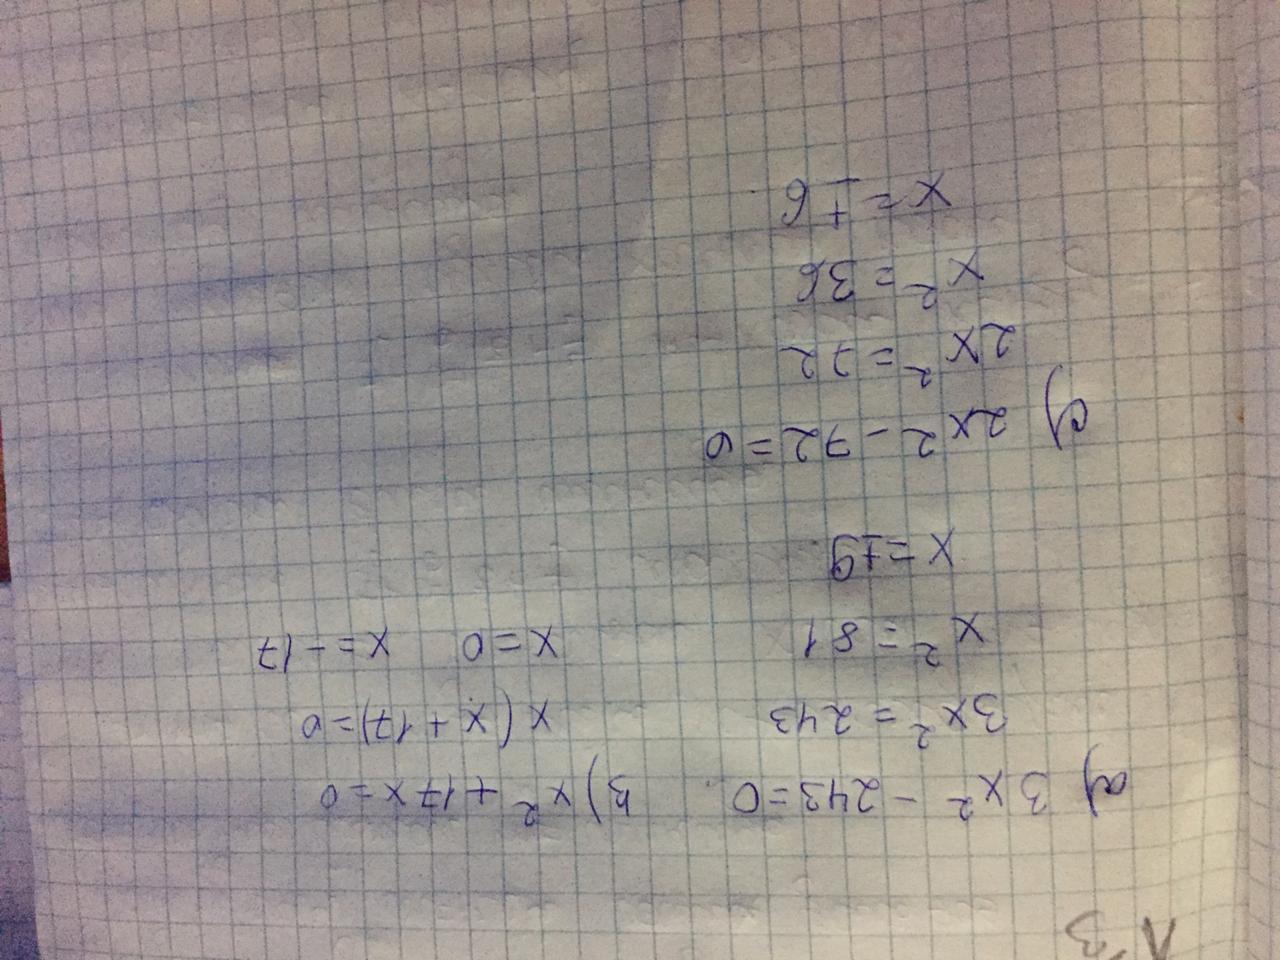 №3
a) 3x² - 243 = 0
3x² = 243
x² = 81
x = ±9
b) x² + 17x = 0
x (x + 17) = 0
x = 0 x = -17
c) 2x² - 72 = 0
2x² = 72
x² = 36
x = ±6